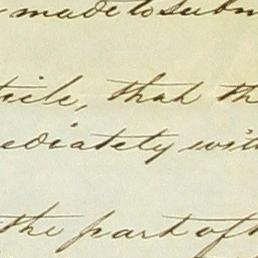 made to subm
ticle, that th
mediately with
the part of th